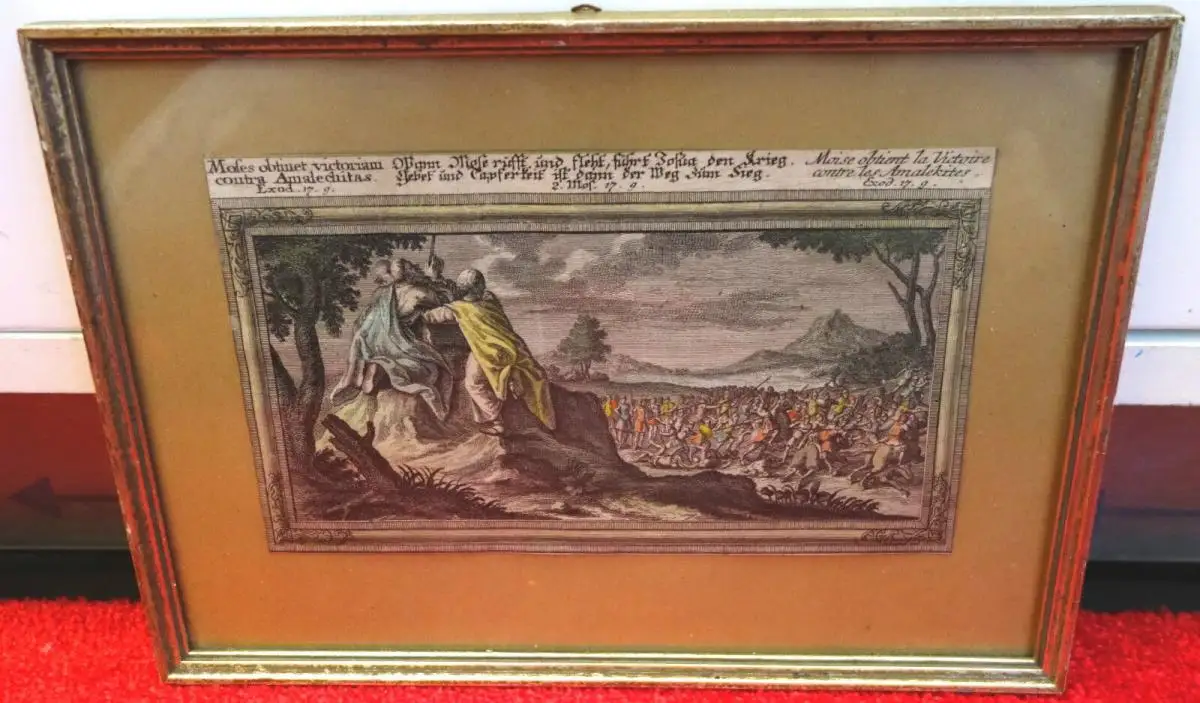 Moses obtinet victoriam
contra Amalechitas.
Exod. 17. 9.
Wann Mose rufft und fleht, führt Josua den Krieg.
Gebet und Tapferkeit ist dann der Weg zum Sieg.
2. Mos. 17. 9.
Moise obtient la Victoire
contre les Amalekites.
Exod. 17. 9.